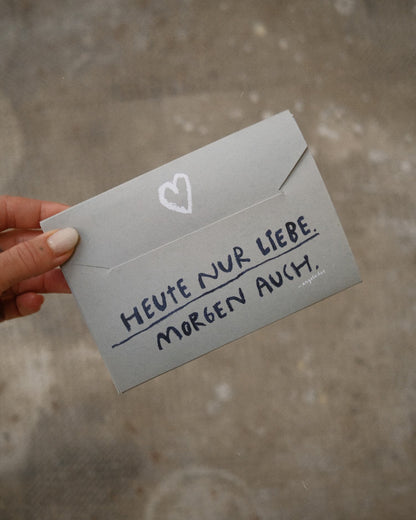 HEUTE NUR LIEBE.
MORGEN AUCH.